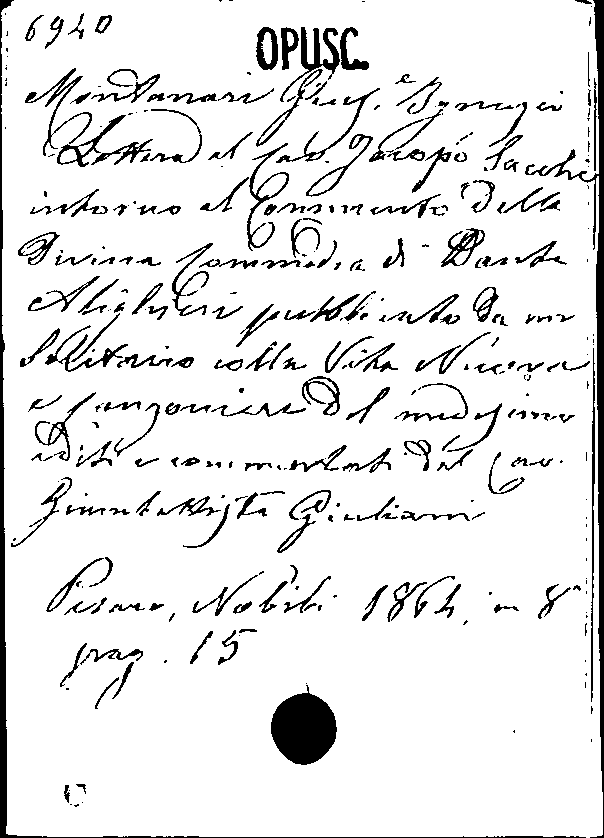 6940
OPUSC.
Montanari Gius.e Ignazio
Lettera al Cav. Jacopo Sacchi
intorno al Commento della
Divina Commedia di Dante
Alighieri pubblicato da un
Solitario colla Vita Nuova
e Canzoniere del medesimo
editi e commentati dal Cav.
Giambattista Giuliani
Pesaro, Nobili 1864, in 8°
pag. 15